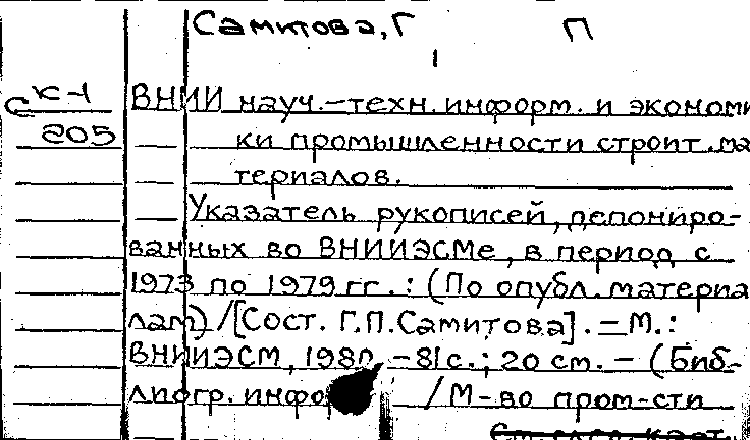 Самитова, Г П
СК-1 ВНИИ науч.-техн. информ. и экономи
205 ки промышленности строит. ма
териалов.
Указатель рукописей, депониро-
ванных во ВНИИЭСМе, в период с
1973 по 1979 гг. : (По опубл. материа
лам) / [Сост. Г.П. Самитова]. – М. :
ВНИИЭСМ, 1980. – 81 с. ; 20 см. – (Биб-
лиогр. инфо / М-во пром-сти
См. след. карт.